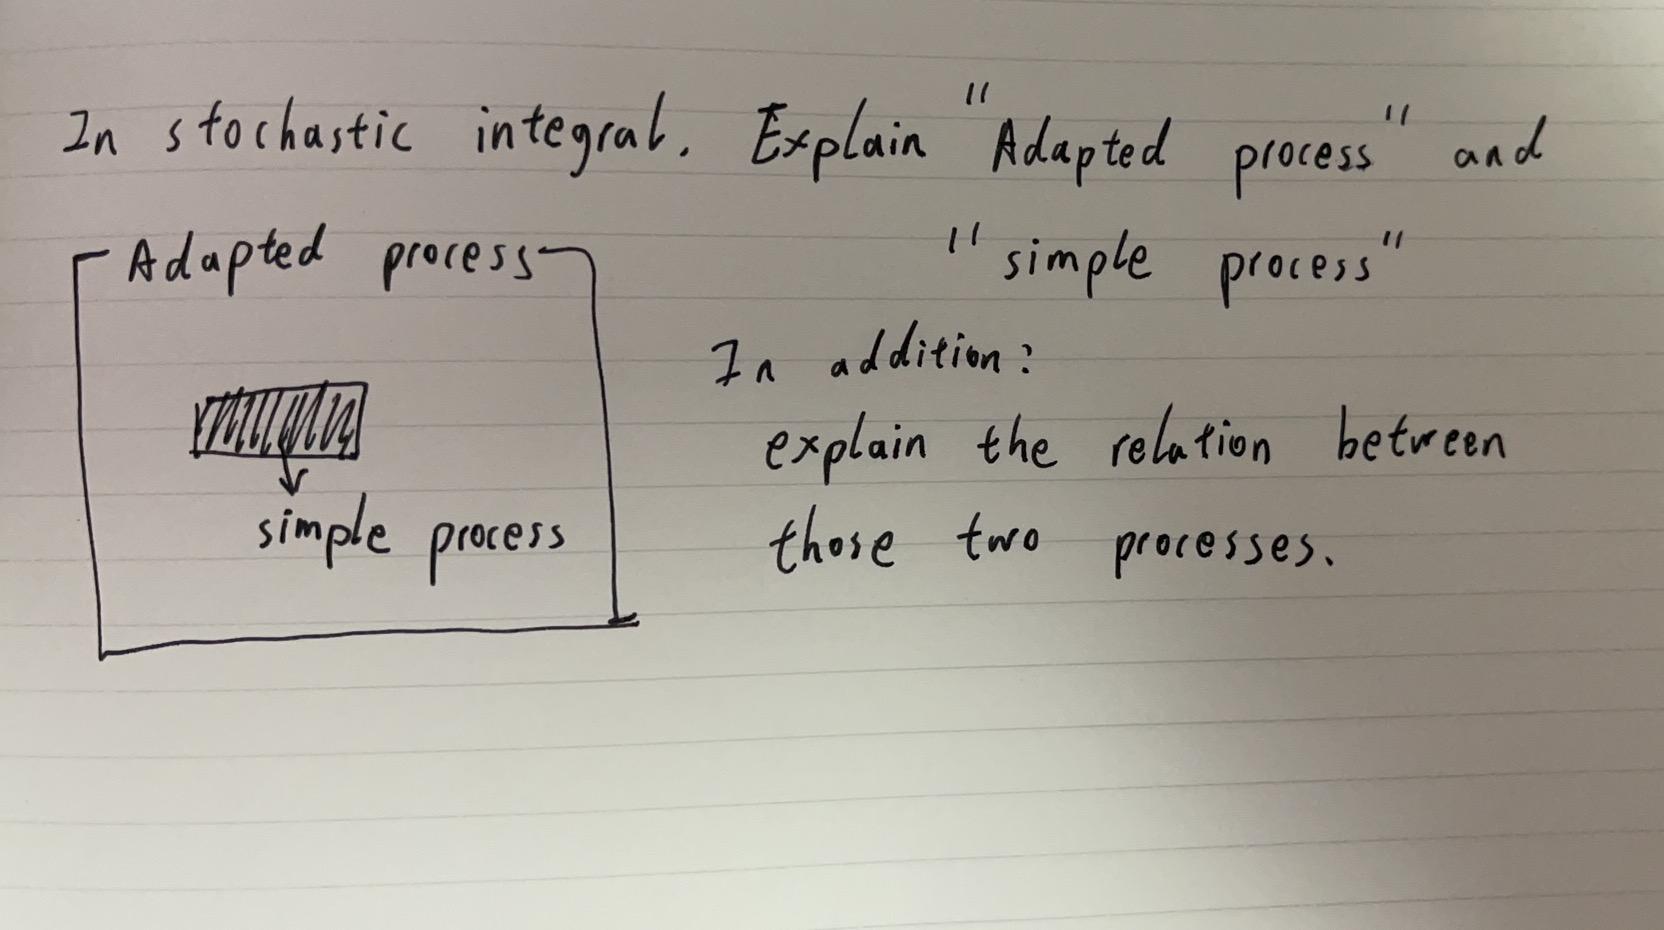 In stochastic integral. Explain "Adapted process" and
"simple process"
Adapted process
simple process
In addition:
explain the relation between
those two processes.